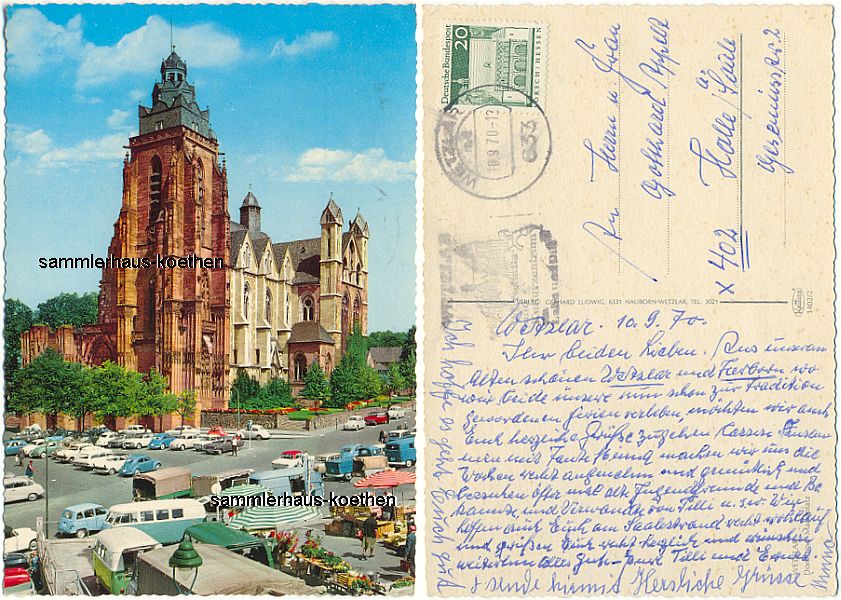 sammlerhaus-koethen
sammlerhaus-koethen
Deutsche Bundespost
20
LORSCH/HESSEN
WETZLAR
10.9.70-12
633
WETZLAR
An Herrn u. Frau
Gotthard Appelt
X 402 Halle/Saale
Geseniusstr. 2
VERLAG GERHARD LUDWIG, 6331 NAUBORN-WETZLAR, TEL. 3021
1402/2
Wetzlar. 10.9.70.
Ihr beiden Lieben. Aus unserem
Alten schönen Wetzlar und Herborn wo
wir beide unsere nun schon zur Tradition
gewordenen Ferien verleben, möchten wir auch
Euch herzliche Grüße
machen wir uns die
Wochen recht angenehm und gemütlich und
besuchen öfter mal alte Jugendfreunde und Be
kannte und Verwandte von Tilli u. so. Wir
hoffen auch Euch am Saalestrand recht wohlauf
und grüßen Euch recht herzlich und wünschen
weiterhin alles Gute Tilli und
+ sende hiermit Herzliche Grüsse
Ich hoffe es geht Euch gut